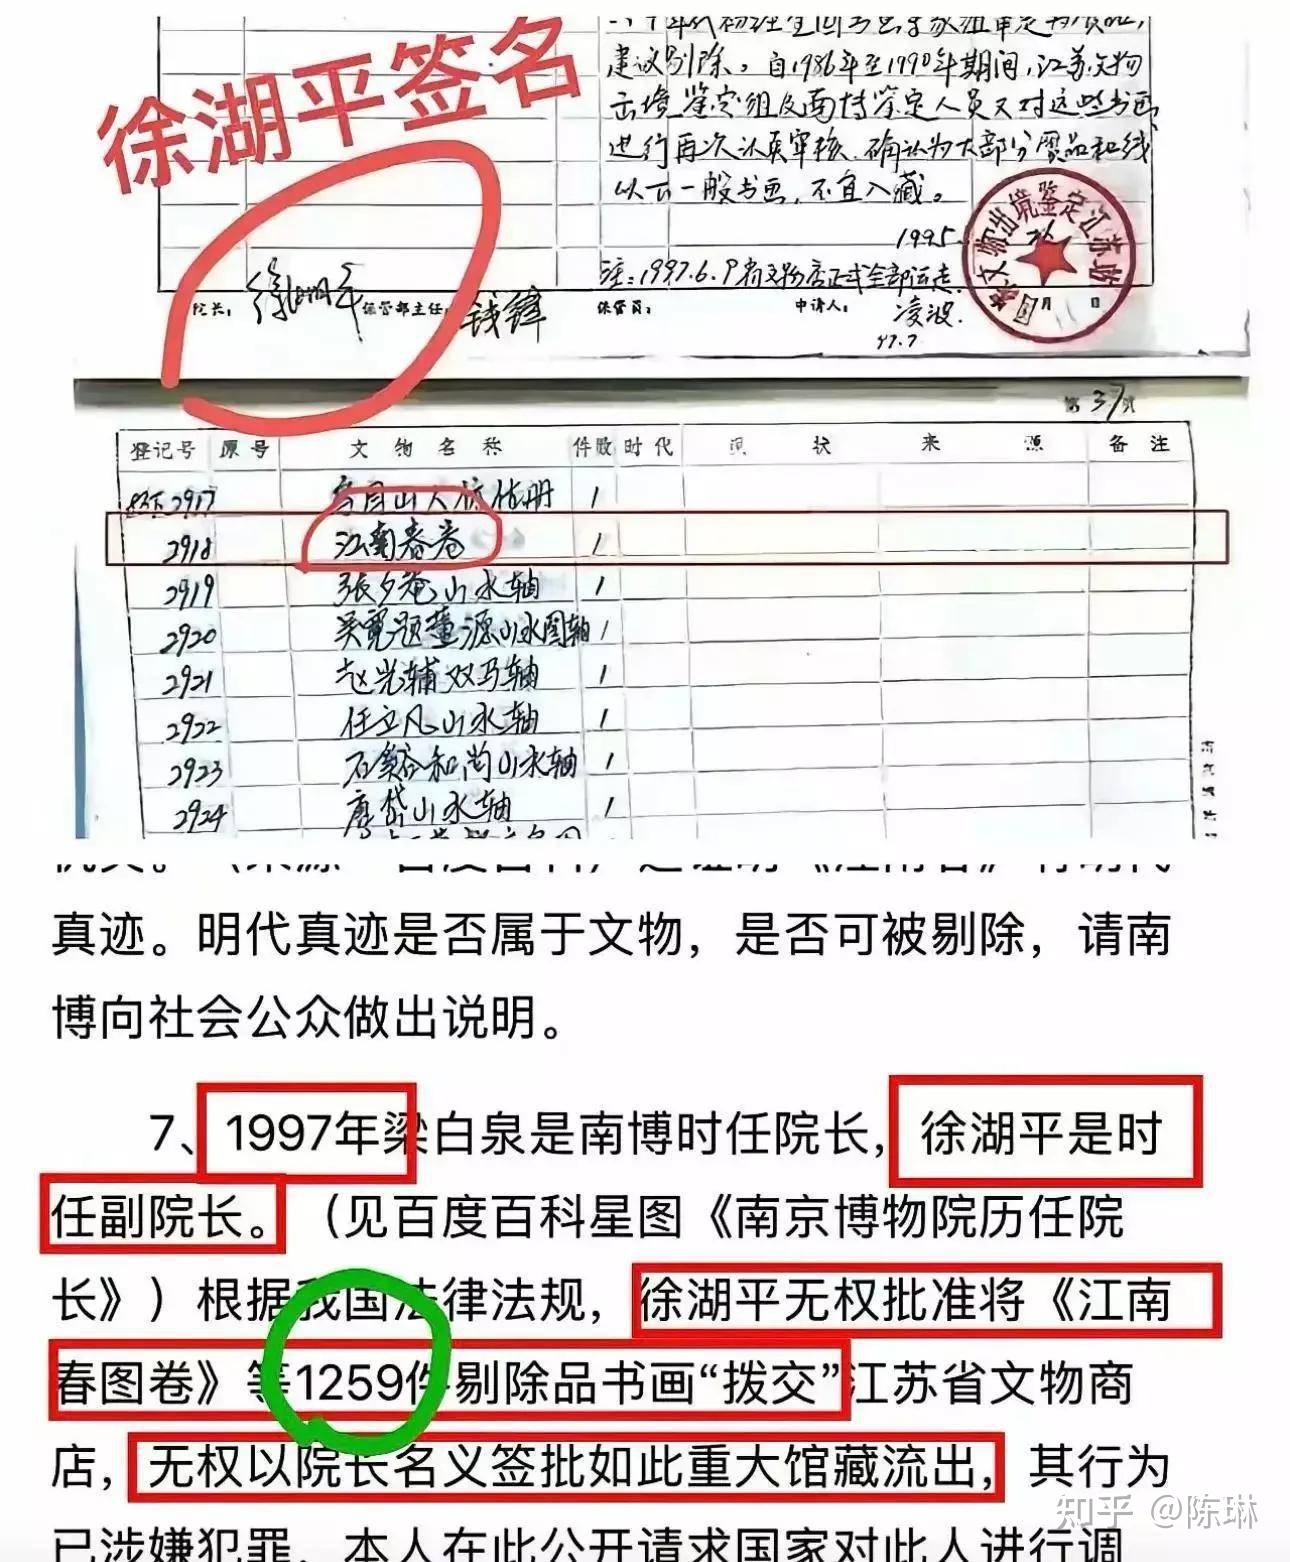 徐湖平签名
建议剔除。自1986年至1990年期间,江苏文物
出境鉴定组及面特鉴定人员又对这些书画
进行再次认真审核、确认为大部分赝品和线
以下一般书画,不宜入藏。
1995
注:1997.6.9
正式全部运走
文物出境鉴定江苏站
月 日
院长: 徐湖平 保管部主任: 钱锋 保管员: 申请人: 凌波.
97.7
第37页
登记号 原号 文物名称 件数 时代 现状 来源 备注
2917 1
2918 江南春卷 1
2919 張夕菴山水轴 1
2920 吴霓题董源山水图轴 1
2921 赵光辅双马轴 1
2922 任立凡山水轴 1
2923 石谿和尚山水轴 1
2924 唐岱山水轴 1
真迹。明代真迹是否属于文物,是否可被剔除,请南
博向社会公众做出说明。
7、1997年梁白泉是南博时任院长,徐湖平是时
任副院长。(见百度百科星图《南京博物院历任院
长》)根据我国法律法规,徐湖平无权批准将《江南
春图卷》等1259件剔除品书画“拨交”江苏省文物商
店,无权以院长名义签批如此重大馆藏流出,其行为
已涉嫌犯罪,本人在此公开请求国家对此人进行调
知乎 @陈琳